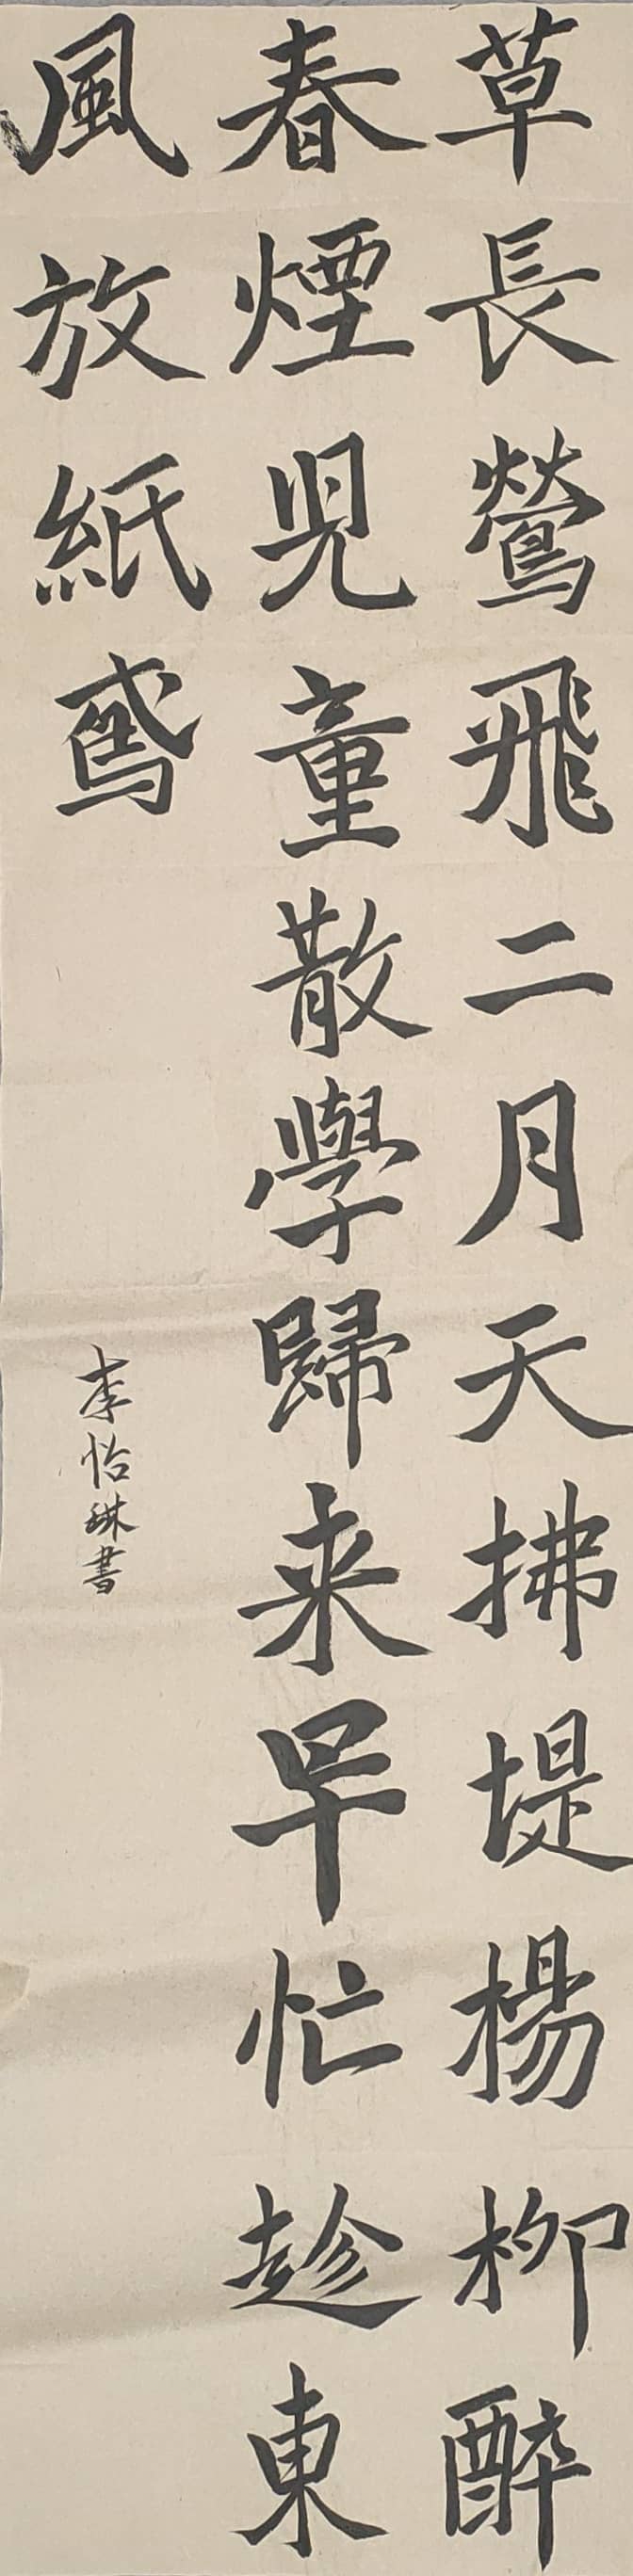 草長鶯飛二月天拂堤楊柳醉
春煙兒童散學歸来早忙趁東
風放紙鳶
李怡琳書